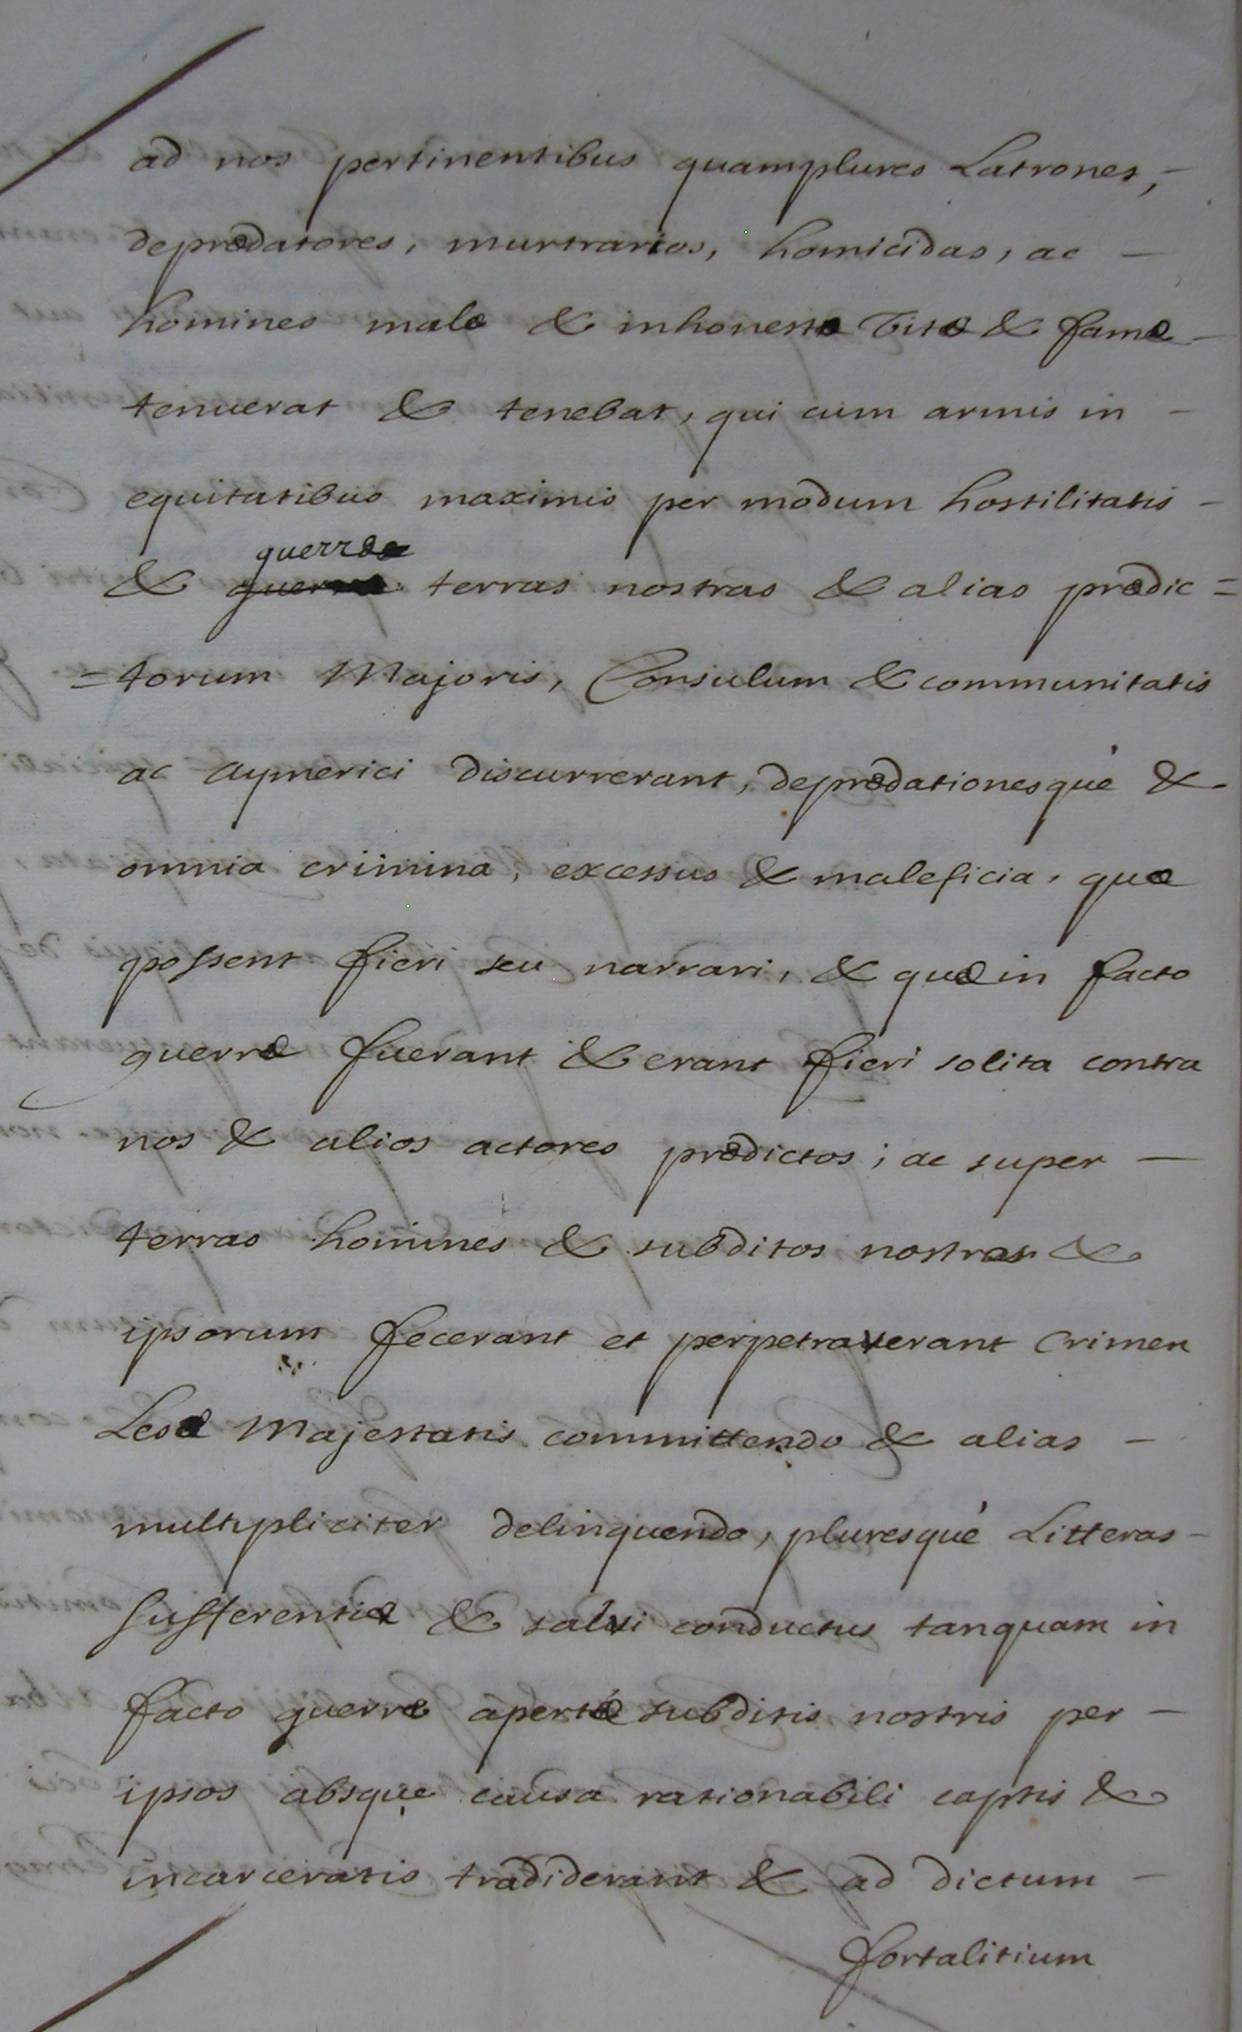 ad nos pertinentibus quamplures Latrones,
deprædatores, murtrarios, homicidas, ac —
homines malæ & inhonestæ vitæ & famæ —
tenuerat & tenebat, qui cum armis in —
equitatibus maximis per modum hostilitatis —
guerræ
& terras nostras & alias prædic =
= torum Majoris, Consulum & communitatis
ac Aymerici discurrerant, deprædationesqué & -
omnia crimina, excessus & maleficia, quæ
possent fieri seu narrari, & quæ in facto
guerræ fuerant & erant fieri solita contra
nos & alios actores prædictos ; ac super —
terras homines & subditos nostros &
ipsorum fecerant et perpetraverant Crimen
Lesæ Majestatis committendo & alias —
multipliciter delinquendo, pluresqué Litteras —
sufferentiæ & salvi conductus tanquam in
facto guerræ apertæ subditis nostris per —
ipsos absque causa rationabili captis &
incarceratis tradiderant & ad dictum —
fortalitium